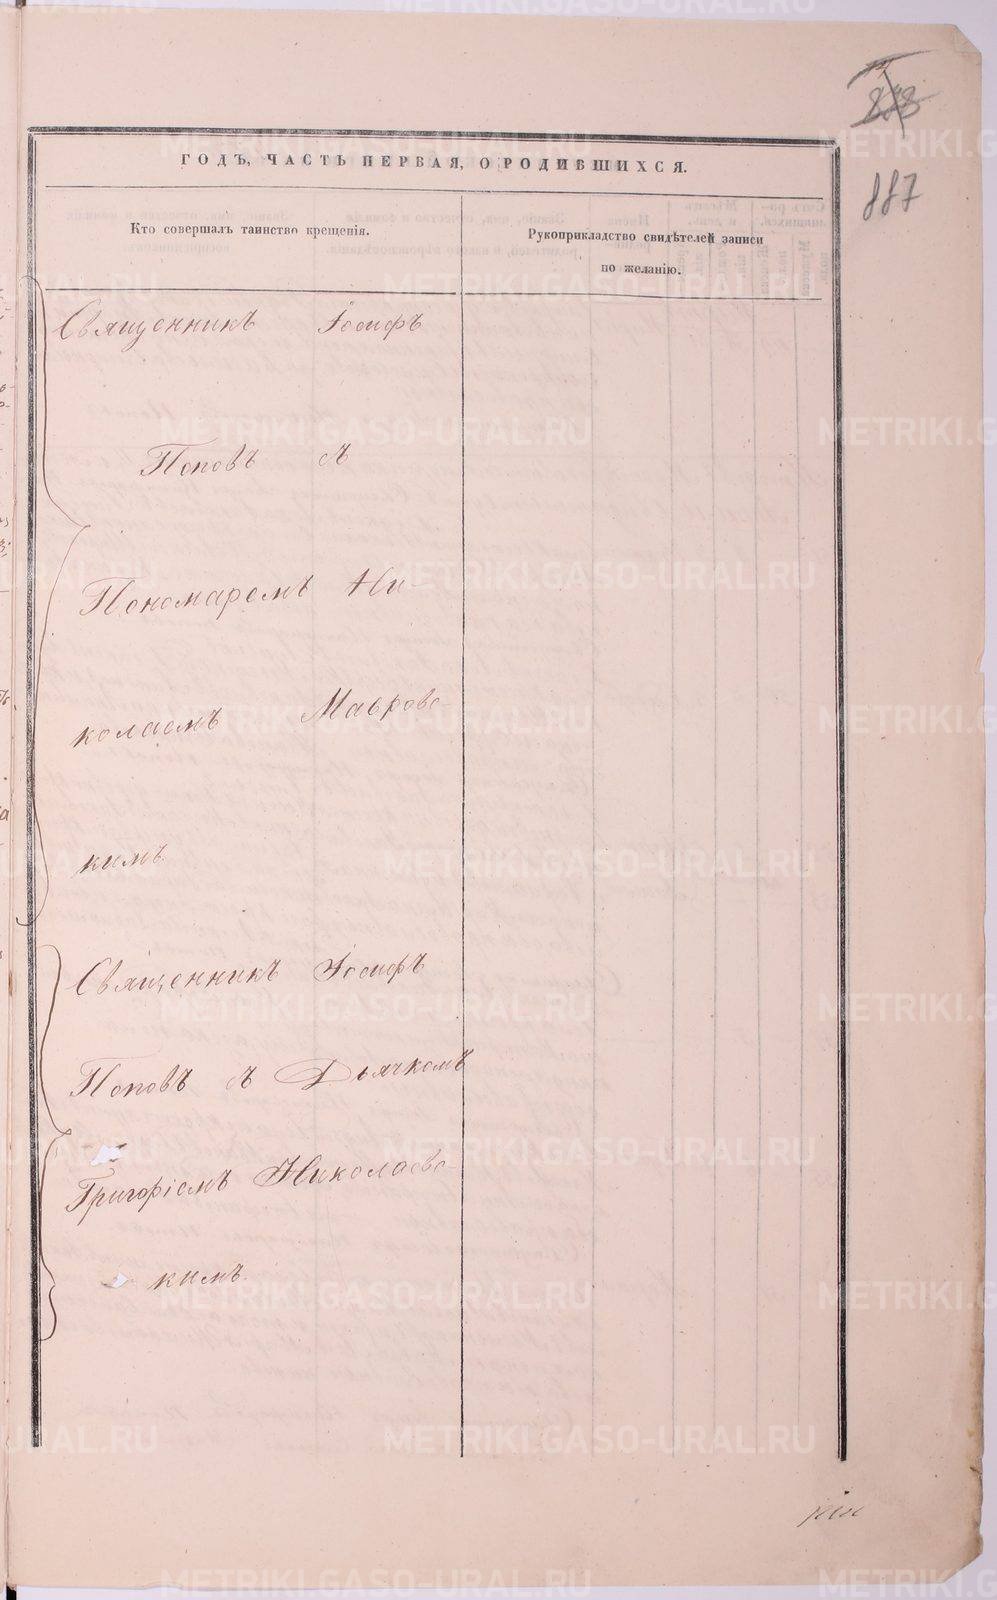 887
ГОДЪ, ЧАСТЬ ПЕРВАЯ, О РОДИВШИХСЯ.
Кто совершалъ таинство крещенія.
Рукоприкладство свидѣтелей записи
по желанію.
Священникъ Іосифъ
Поповъ съ
Пономаремъ Ни
колаемъ Мавровс-
кимъ
Священникъ Іосифъ
Поповъ съ Дьячкомъ
Григоріемъ Николаевс-
кимъ
METRIKI.GASO-URAL.RU